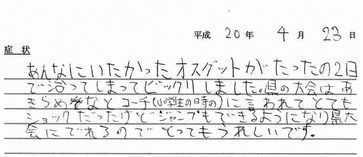 平成 20年 4月 23日
症状
あんなにいたかったオスグットがたったの2日
で治ってしまってビックリしました。県の大会はあ
きらめなとコーチ(小学生の時の)に言われてとても
ショックだったけどジャンプもできるようになり県大
会にでれるのでとってもうれしいです。